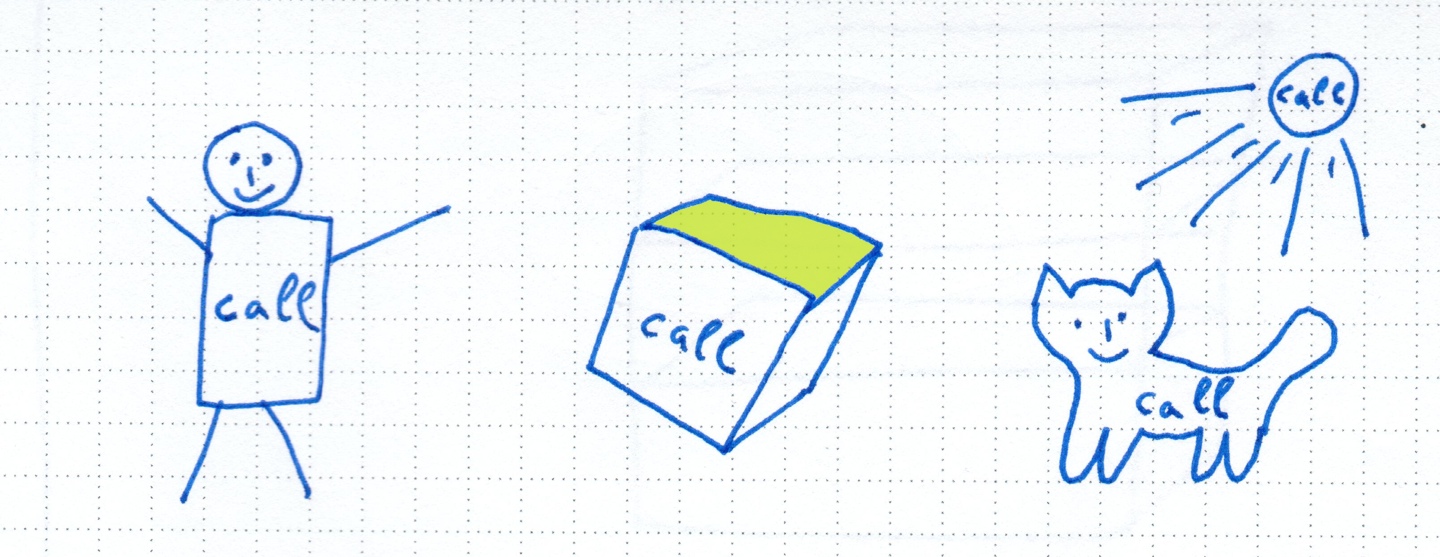 call
call
call
call